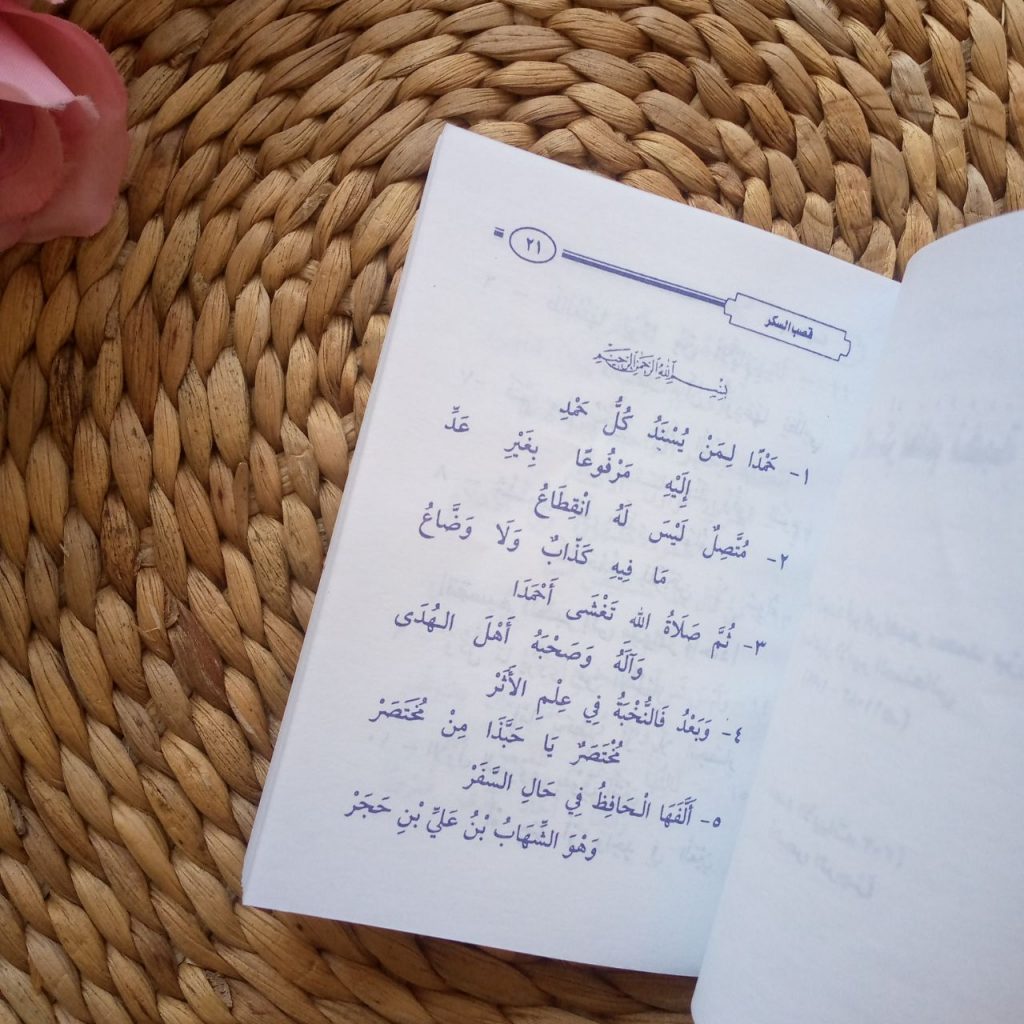 ٢١
قصب السكر
بِسْمِ اللهِ الرَّحْمَنِ الرَّحِيمِ
١- حَمْدًا لِمَنْ يُسْنَدُ كُلُّ حَمْدِ
إِلَيْهِ مَرْفُوعًا بِغَيْرِ عَدِّ
٢- مُتَّصِلٌ لَيْسَ لَهُ انْقِطَاعُ
مَا فِيهِ كَذَّابٌ وَلَا وَضَّاعُ
٣- ثُمَّ صَلَاةُ الله تَغْشَى أَحْمَدَا
وَآلَهُ وَصَحْبَهُ أَهْلَ الـهُدَى
٤- وَبَعْدُ فَالنُّخْبَةُ فِي عِلْمِ الأَثَرْ
مُخْتَصَرٌ يَا حَبَّذَا مِنْ مُخْتَصَرْ
٥- أَلَّفَهَا الْـحَافِظُ فِي حَالِ السَّفَرْ
وَهْوَ الشِّهَابُ بْنُ عَلِيِّ بْنِ حَجَرْ